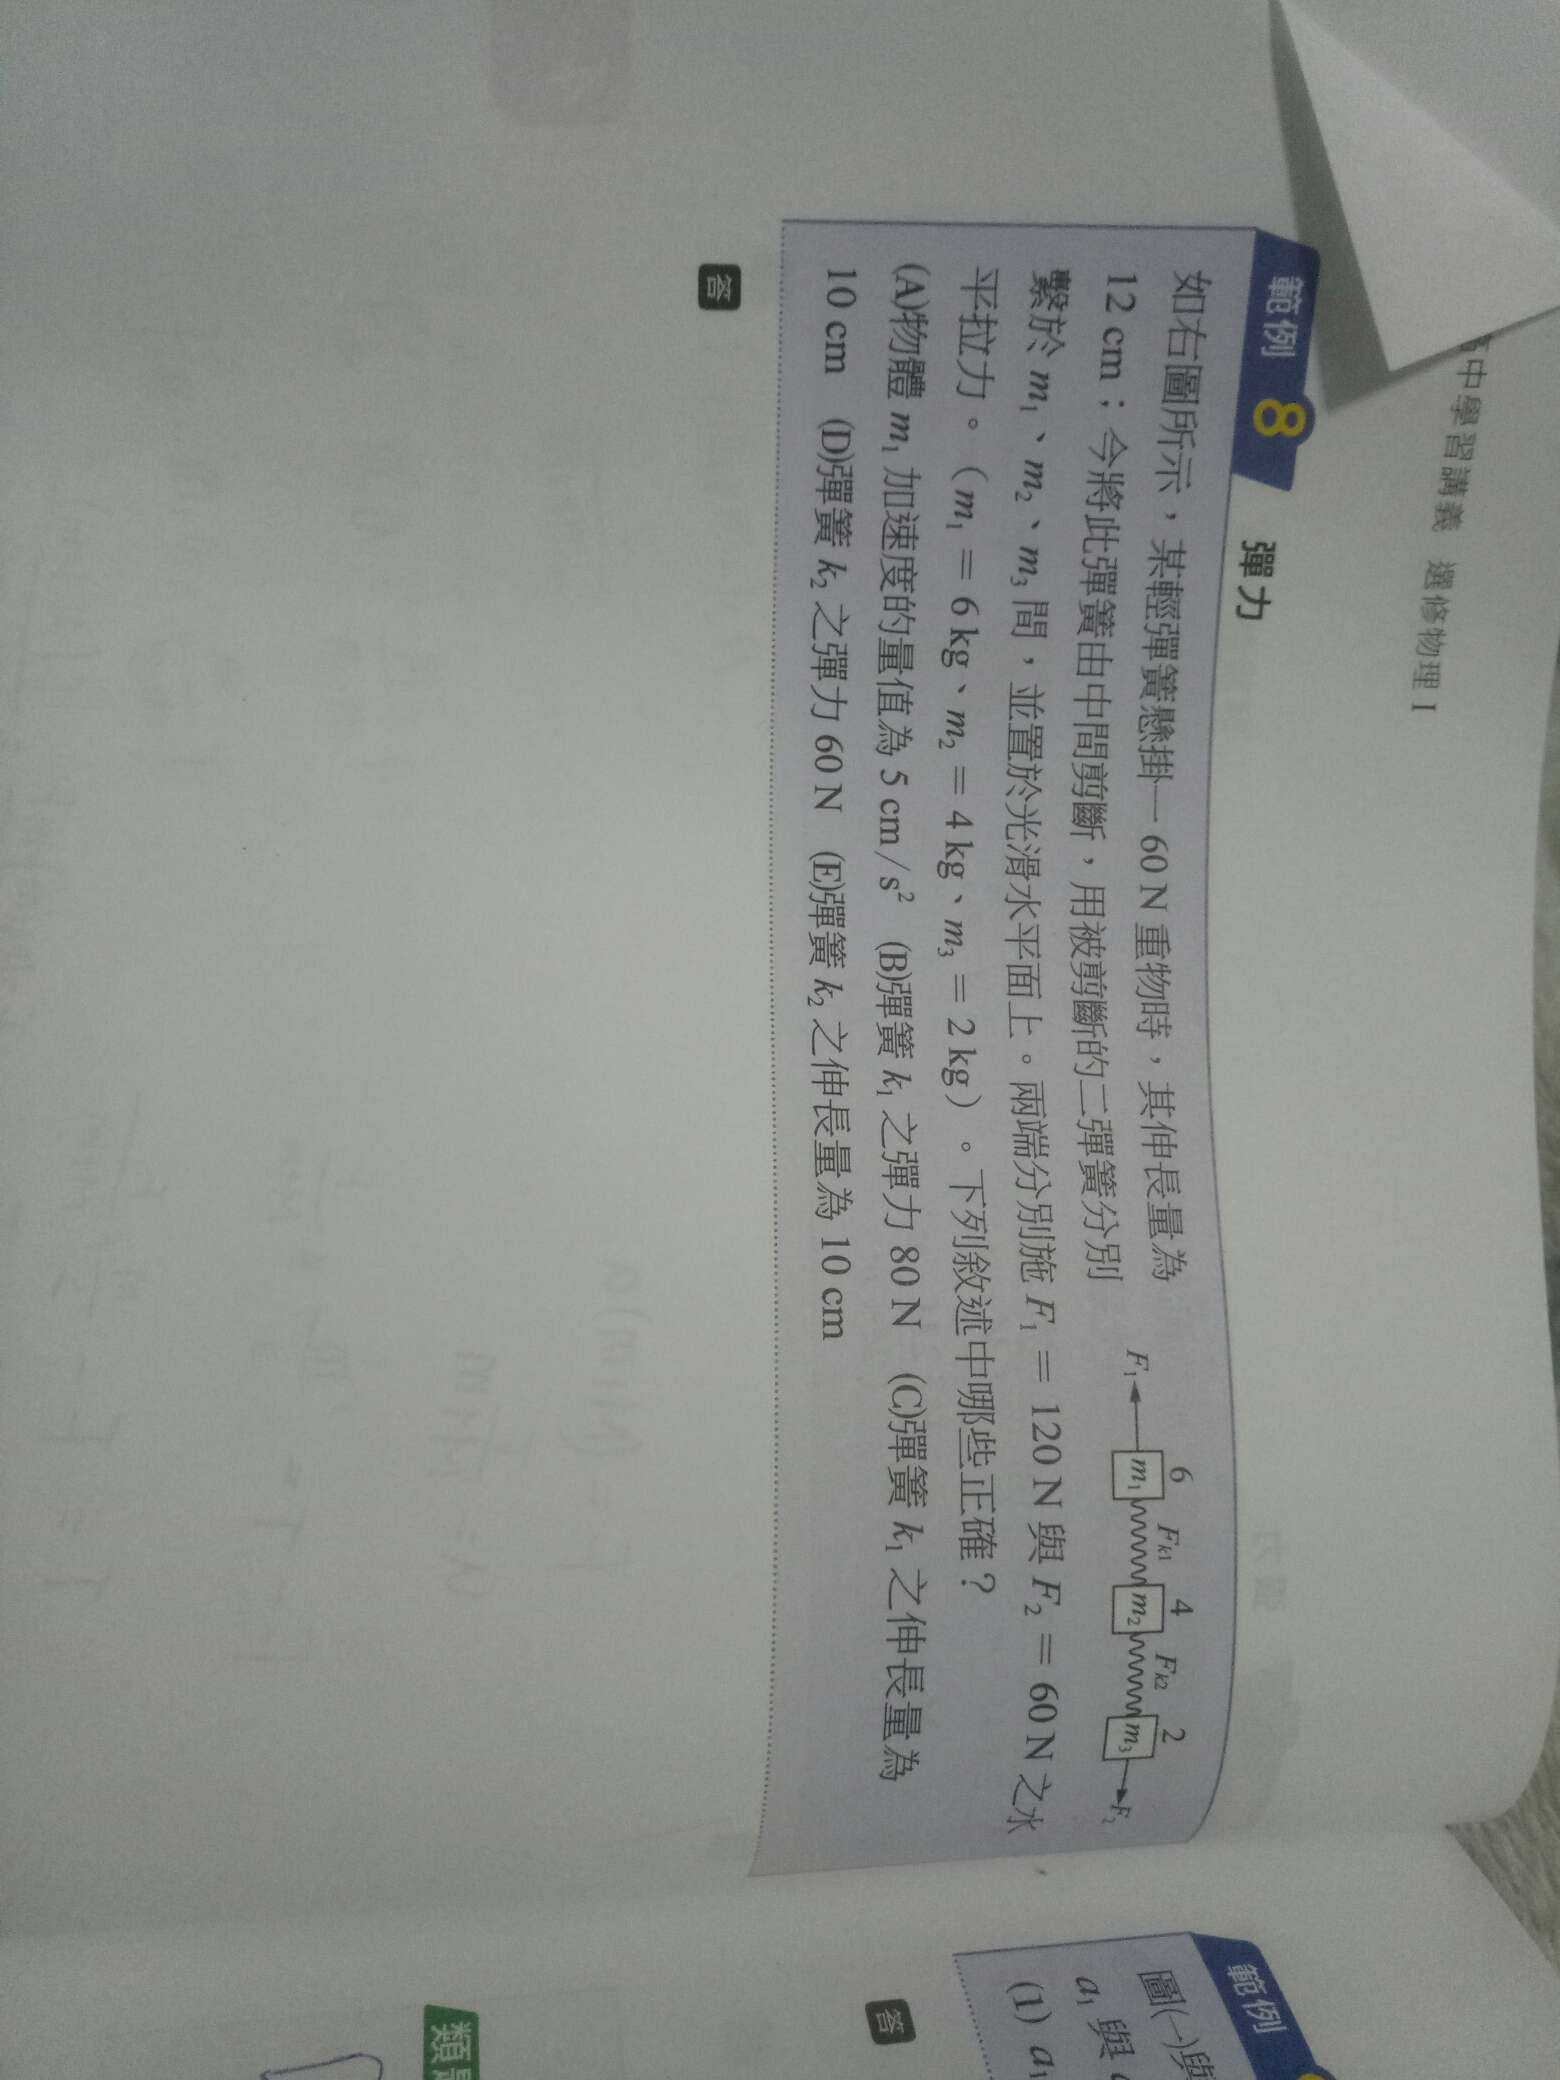 高中學習講義 選修物理 I
範例 8 彈力
如右圖所示，某輕彈簧懸掛一 60 N 重物時，其伸長量為
12 cm；今將此彈簧由中間剪斷，用被剪斷的二彈簧分別
繫於 m₁、m₂、m₃ 間，並置於光滑水平面上。兩端分別施 F₁ = 120 N 與 F₂ = 60 N 之水
平拉力。（m₁ = 6 kg、m₂ = 4 kg、m₃ = 2 kg）。下列敘述中哪些正確？
(A)物體 m₁ 加速度的量值為 5 cm/s² (B)彈簧 k₁ 之彈力 80 N (C)彈簧 k₁ 之伸長量為
10 cm (D)彈簧 k₂ 之彈力 60 N (E)彈簧 k₂ 之伸長量為 10 cm
6 Fk1 4 Fk2 2
F₁ m₁ m₂ m₃ F₂
答
範例
圖(一)與
a₁ 與
(1) a₁
答
類